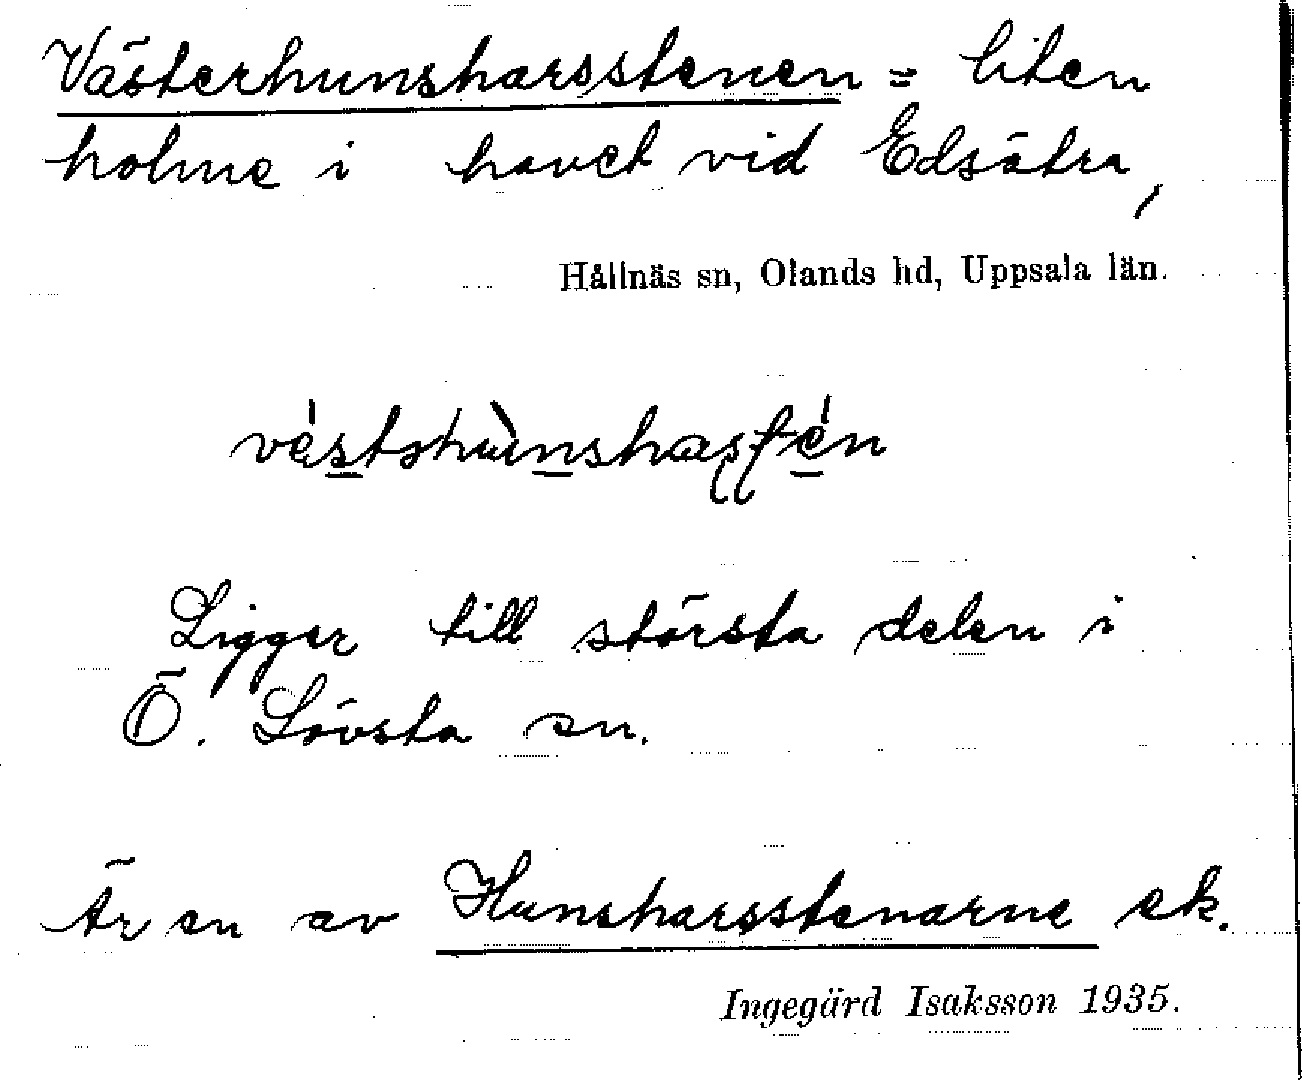 Västerhunsharsstenen = liten
holme i havet vid Edsätra,
Hållnäs sn, Olands hd, Uppsala län.
Ligger till största delen i
Ö. Lövsta sn.
Är en av Hunsharsstenarne ek.
Ingegärd Isaksson 1935.